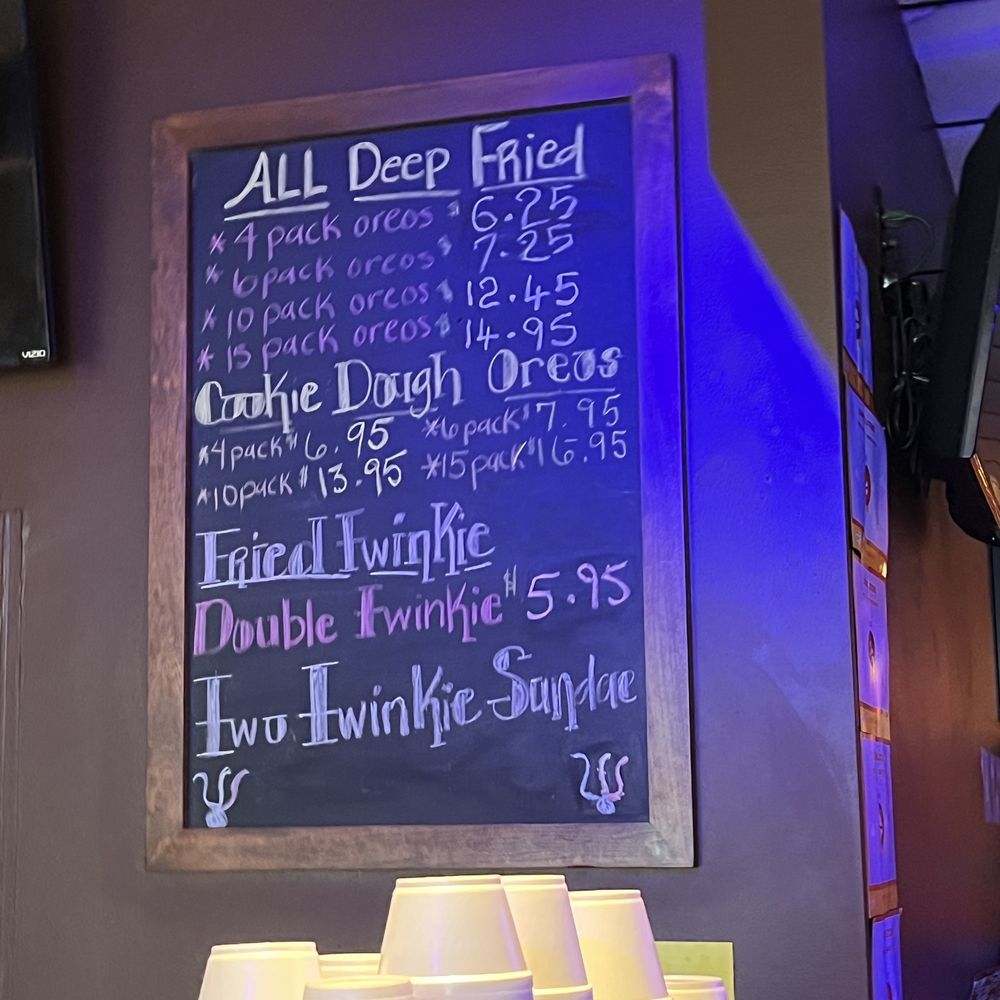 VIZIO
ALL Deep Fried
* 4 pack oreos $ 6.25
* 6 pack oreos $ 7.25
* 10 pack oreos $ 12.45
* 15 pack oreos $ 14.95
Cookie Dough Oreos
*4 pack $ 6.95 *6 pack $ 7.95
*10 pack $ 13.95 *15 pack $ 16.95
Fried Twinkie
Double Twinkie $ 5.95
Two Twinkie Sundae